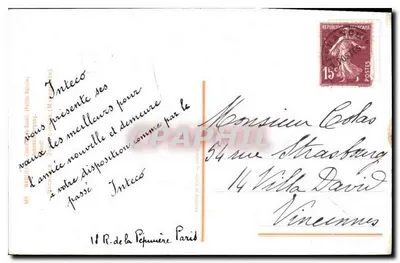 Inteco
vous présente ses
vœux les meilleurs pour
l'année nouvelle et demeure
à votre disposition comme par le
passé Inteco
18 R. de la Pépinière Paris
Monsieur Colas
54 rue Strasbourg
14 Villa David
Vincennes
15
POSTES